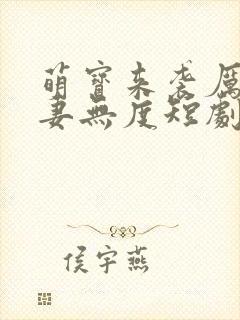 萌寶來袭厲
妻無度短劇
侯宇燕